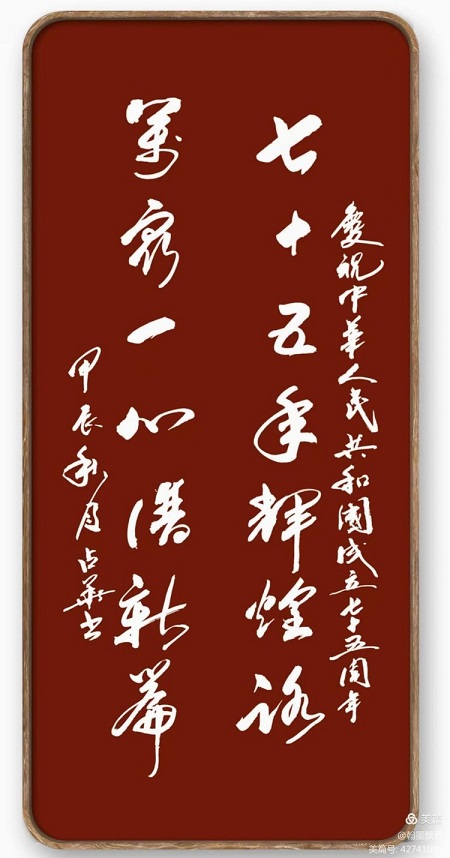 慶祝中華人民共和國成立七十五周年
七十五年輝煌路
萬衆一心譜新篇
甲辰秋月占華书
美篇
@翰墨飘香
美篇号: 42741